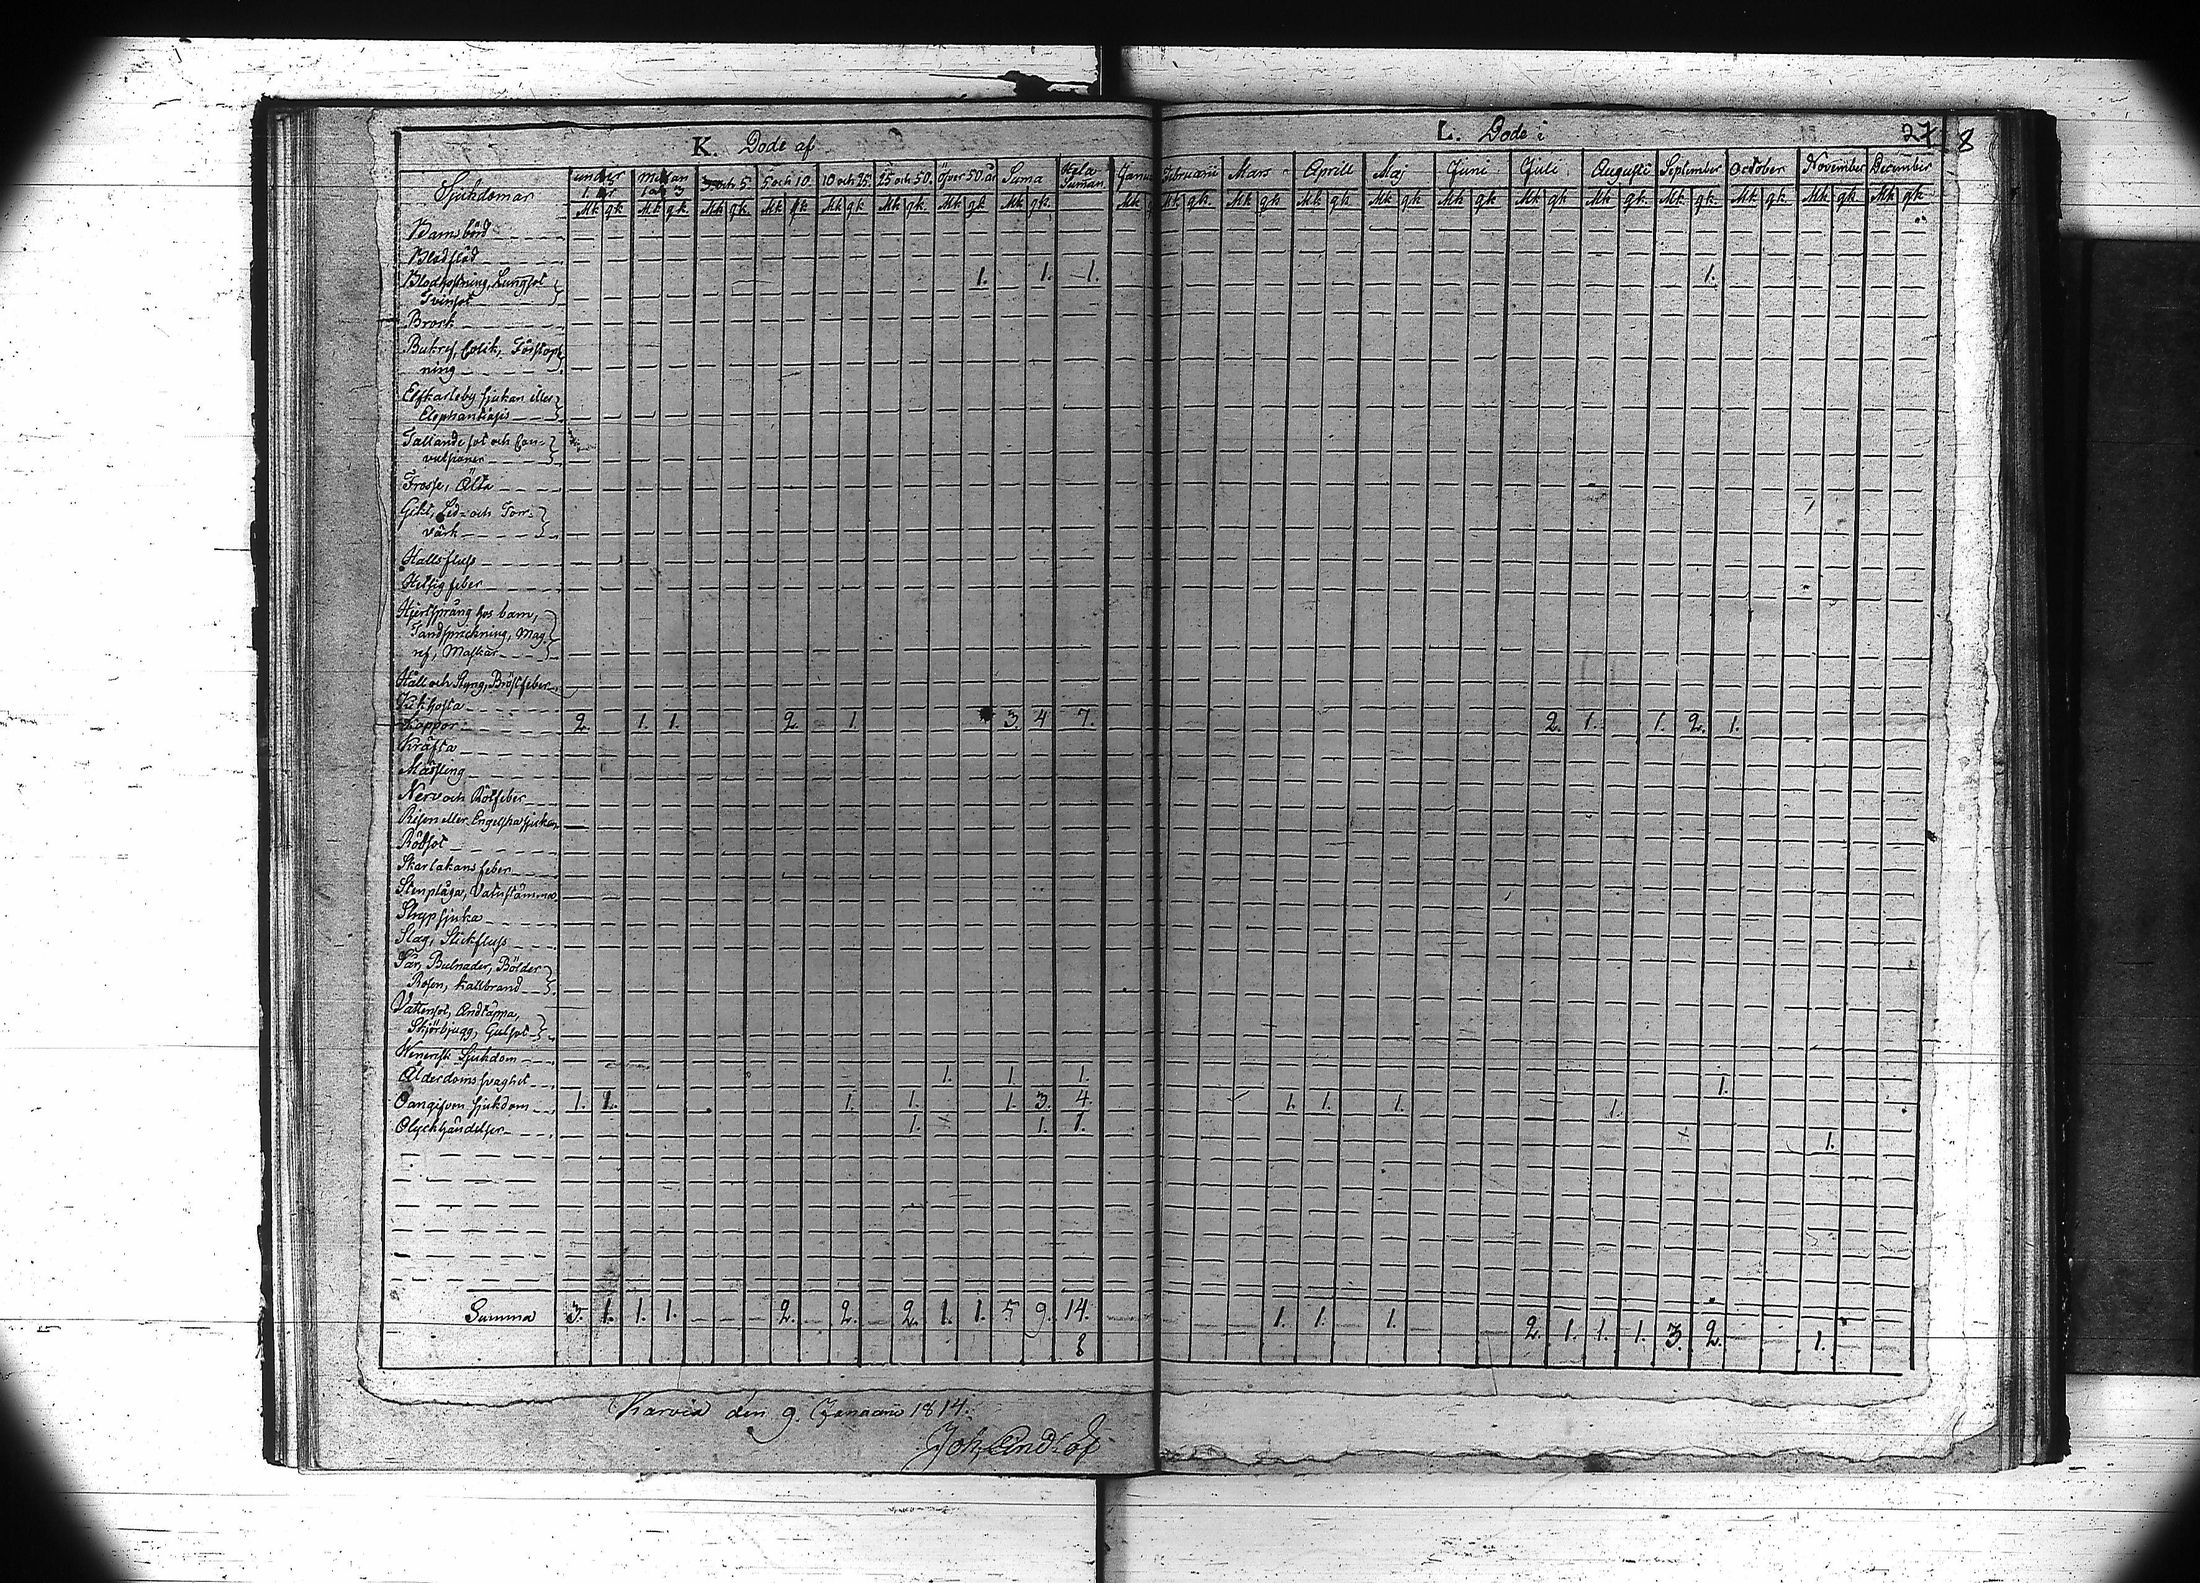 K. Döde af
L. Döde i
27 8
Sjukdomar under 1 år mellan 1 och 3 3 och 5 5 och 10. 10 och 25. 25 och 50. öfver 50. år Suma Hela Suman Februarii Mars Aprill Maj Juni Juli Augusti September October November December
Mk gk Mk gk Mk gk Mk gk Mk gk Mk gk Mk gk Mk gk Mk Mk gk Mk gk Mk gk Mk gk Mk gk Mk gk Mk gk Mk gk Mk gk Mk gk Mk gk
Barnsbörd
Blodflöd
Blodhostning, Lungsot 1. 1. 1. 1.
Tvinsot
Brock
Bukref, Colik, Förstopp
ning
Elfkarleby sjukan eller
Elephantiasis
Fallande sot och Con-
vulsioner
Frossa, Älta
Gikt, Led- och Torr-
värk
Halsfluss
Hetsig feber
Hjertsprång hos barn,
Tandsprickning, Mag-
ref, Maskar
Håll och Styng, Bröstfeber
Kikhosta
Koppor 2. 1. 1. 2. 1. 3. 4 7. 2. 1. 1. 2. 1.
Kräfta
Mässling
Nerv och Rötfeber
Risen eller Engelska sjukan
Rödsot
Skarlakansfeber
Stenplåga, Vatustämma
Strypsjuka
Slag, Stickfluss
Sår, Bulnader, Bölder
Rosen, Kallbrand
Vattensot, Andtäppa,
Skjörbjugg, Gulsot
Venerisk Sjukdom
Ålderdomssvaghet 1. 1 1. 1.
Oangifven sjukdom 1. 1. 1. 1. 1. 3. 4 1. 1. 1. 1.
Olyckshändelser 1. 1. 1. 1.
Summa 3. 1. 1. 1. 2. 2. 2. 1. 1. 5 9. 14. 1. 1. 1. 2. 1. 1. 1. 3. 2. 1.
8
Karvia den 9. Januarii 1814.
Joh Lindlöf